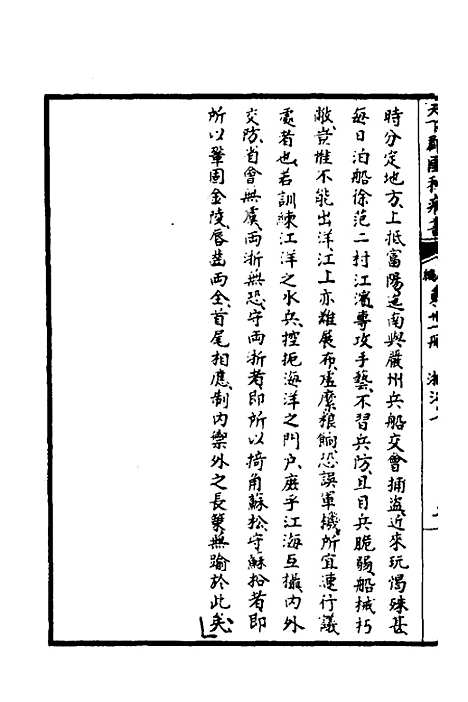 天下郡國利病書
時分定地方上抵富陽迤南與嚴州兵船交會捕盜近來玩愒殊甚
每日泊船徐范二村江濱專攻手藝不習兵防且目兵脆弱船械朽
敝豈惟不能出洋江上亦難展布虛縻糧餉恐誤軍機所宜速行議
處者也若訓練江洋之水兵控扼海洋之門戶庶乎江海互援內外
交防省會無虞兩浙無恐守兩浙者即所以掎角蘇松守蘇松者即
所以鞏固金陵唇齒兩全首尾相應制內禦外之長策無踰於此矣